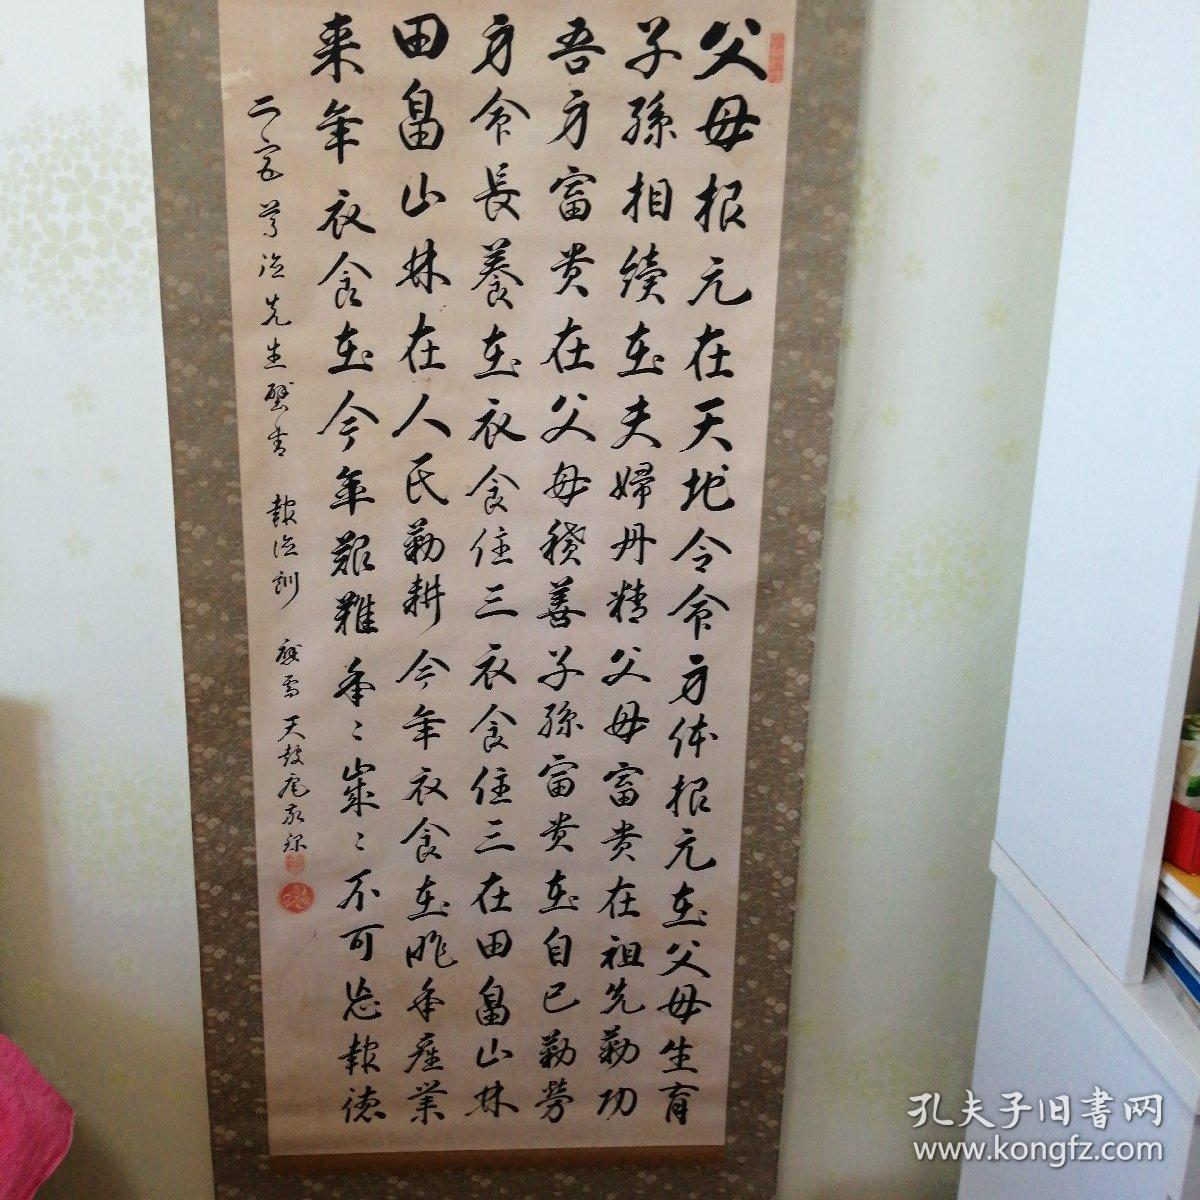 父母根元在天地令命身体根元在父母生育
子孫相續在夫婦丹精父母富貴在祖先勤功
吾身富貴在父母積善子孫富貴在自己勤労
身命長養在衣食住三衣食住三在田畠山林
田畠山林在人民勤耕今年衣食在昨年産業
来年衣食在今年艱難年〻歳〻不可忘報徳
二宮尊徳先生壁書 報徳訓 應需 天鼓庵
孔夫子旧書网
www.kongfz.com